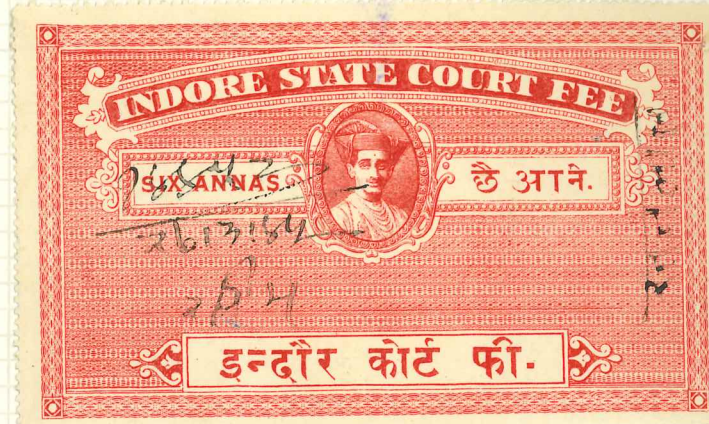 INDORE STATE COURT FEE
SIX ANNAS. छै आने.
इन्दौर कोर्ट फी.